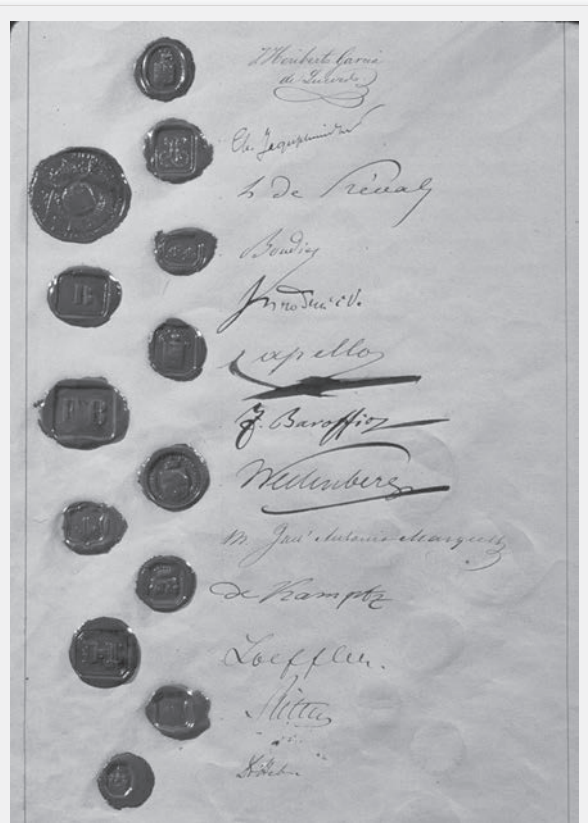 J. Heriberto García
de Quevedo
Ch. Jagerschmidt
S. de Préval
Boudier
Capello
F. Baroffio
Westenberg
José Antonio Marques
de Kamptz
Loeffler.
Ritter
B